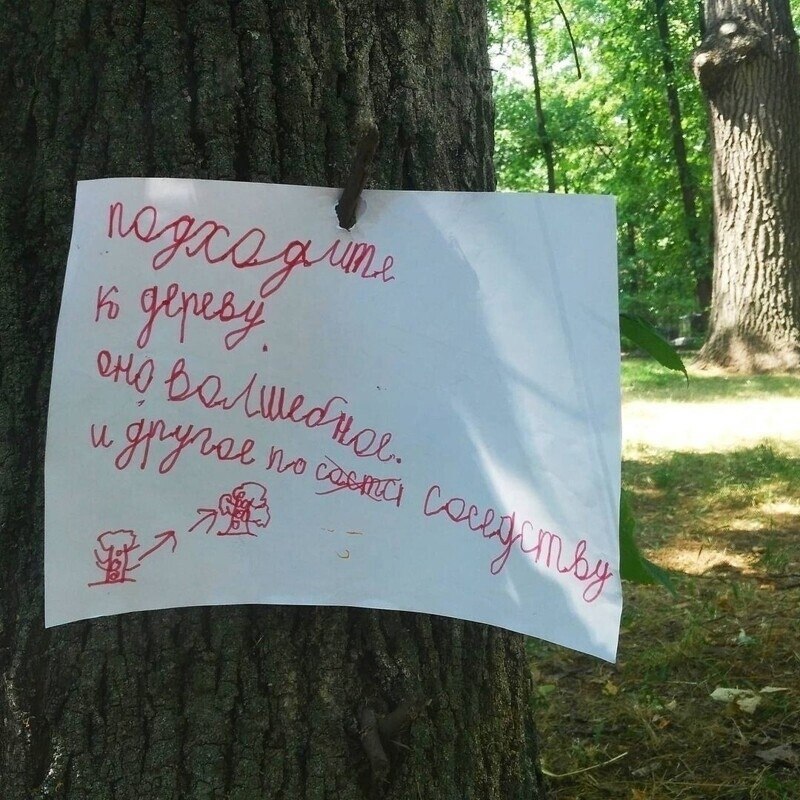 подходите
к дереву.
оно волшебное.
и другое по соседству